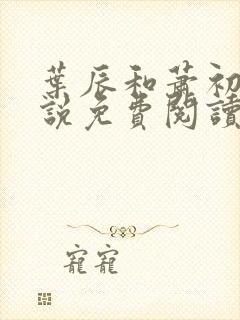 葉辰和蕭初
說免費閱讀
寵寵